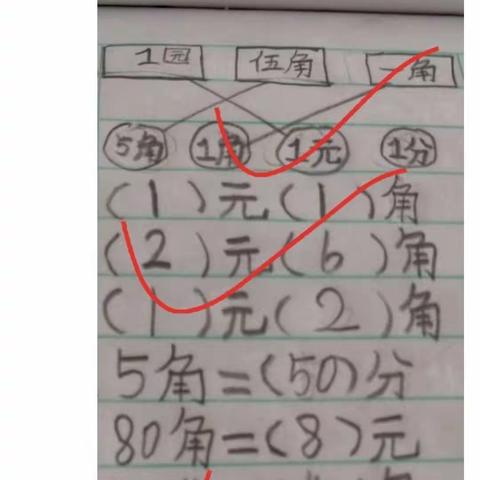 1园 伍角 一角
5角 1角 1元 1分
(1)元(1)角
(2)元(6)角
(1)元(2)角
5角=(50)分
80角=(8)元